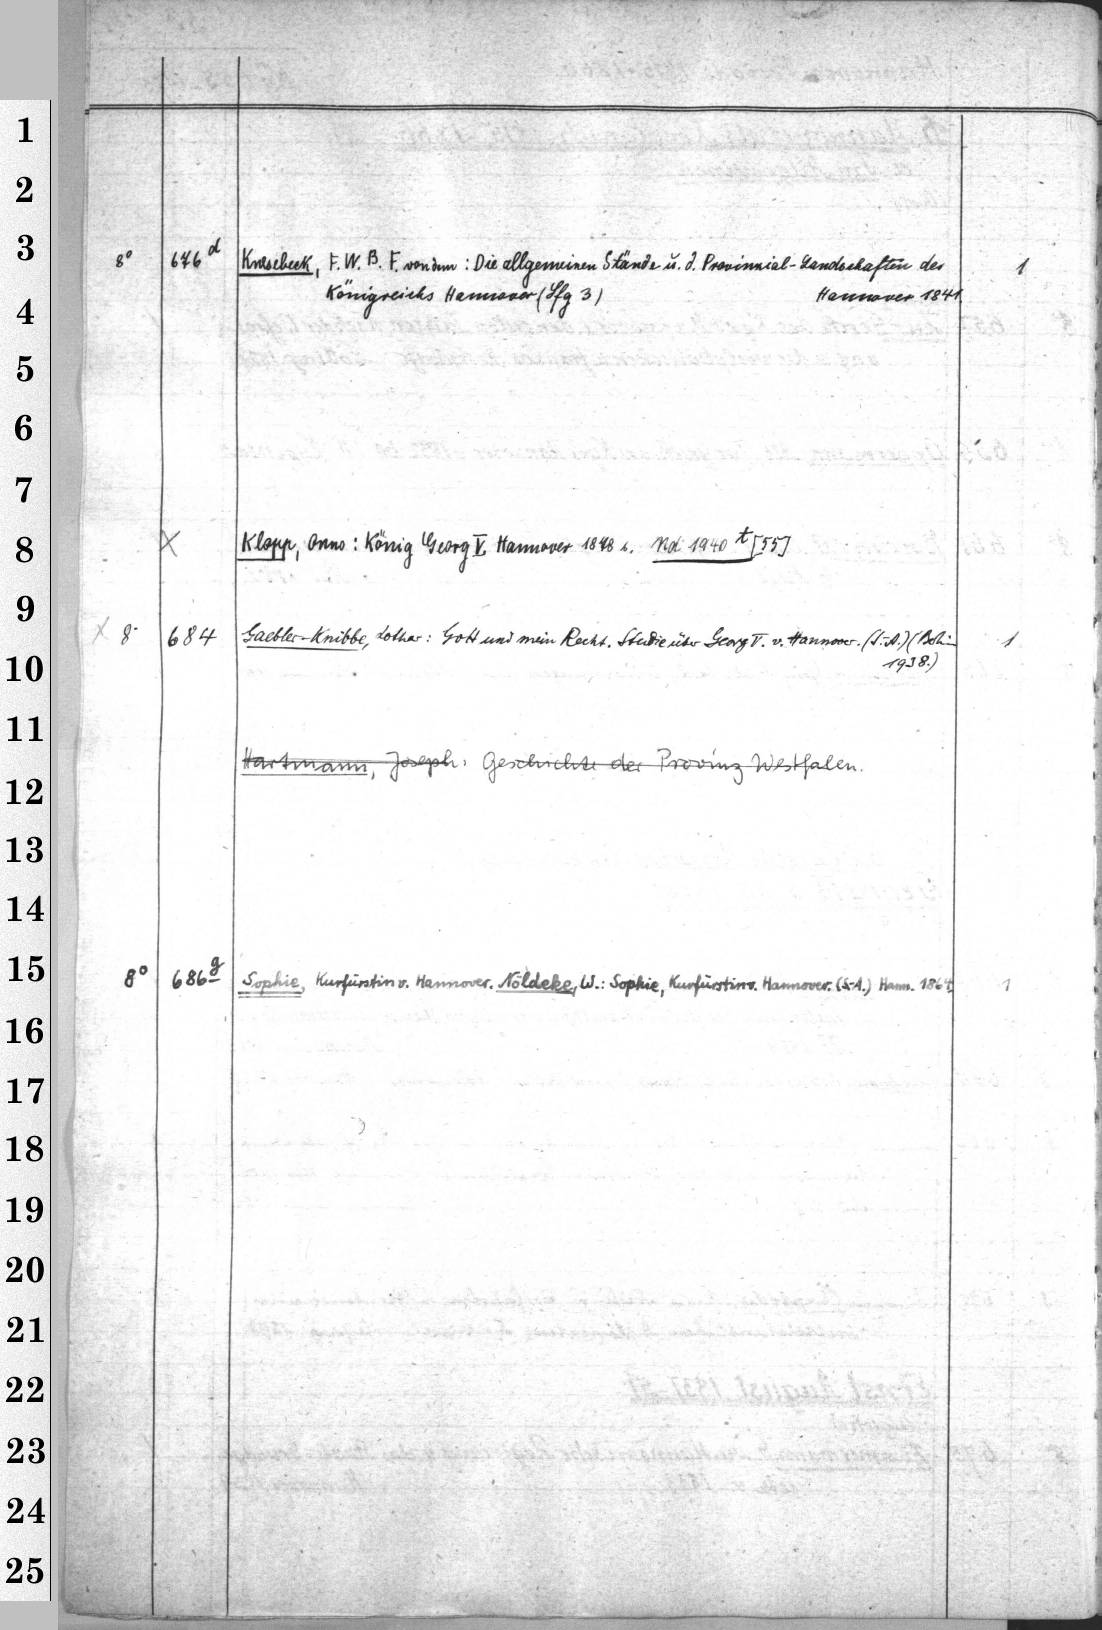 1
2
3
8° 676 d Knesebeck, F. W. B. F. von dem: Die allgemeinen Stände u. d. Provinzial-Landschaften des 1
Königreichs Hannover (Lfg 3) Hannover 1841
4
5
6
7
8
X Klopp, Onno: König Georg V. Hannover 1878 s. Nd. 1940 t [55]
9
X 8° 684 Gaebler-Knibbe, Lothar: Gott und mein Recht. Studie über Georg V. v. Hannover. (S.-A.) (Berlin 1
1938.)
10
11
Hartmann, Joseph: Geschichte der Provinz Westfalen.
12
13
14
15
8° 686 g Sophie, Kurfürstin v. Hannover. Nöldeke, W.: Sophie, Kurfürstin v. Hannover. (S.-A.) Hann. 1864. 1
16
17
18
19
20
21
22
23
24
25